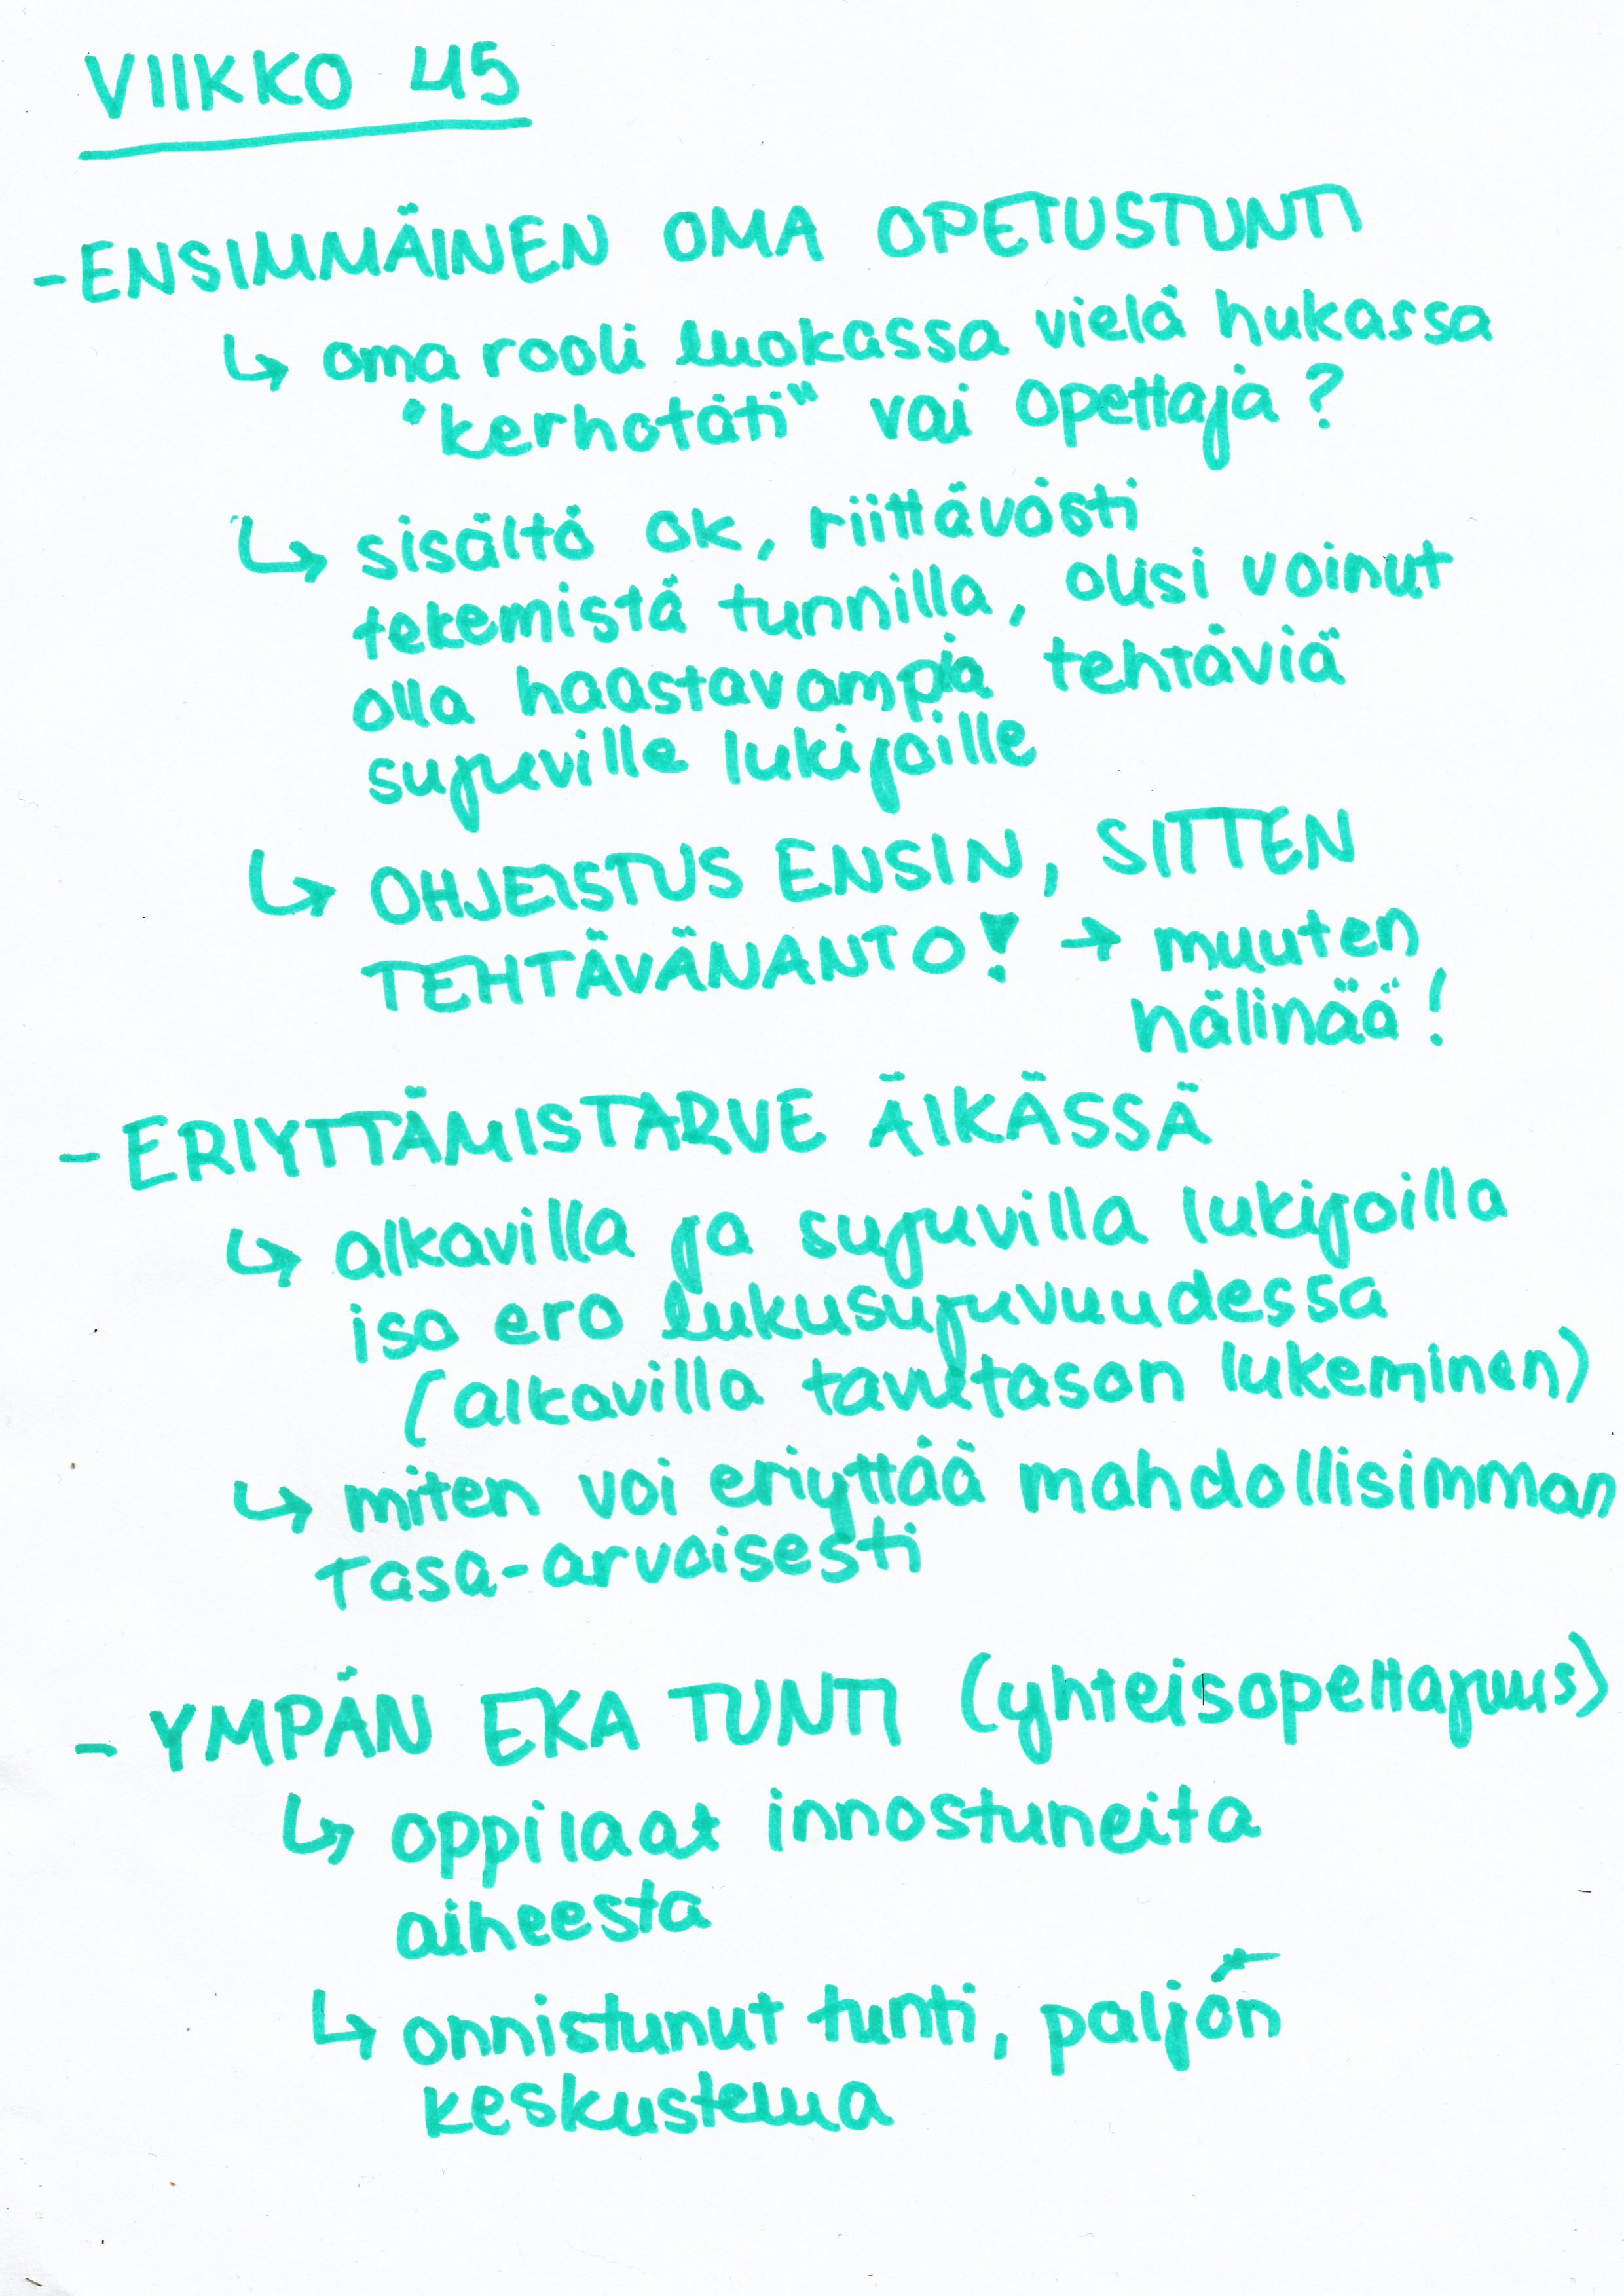 VIIKKO 45
- ENSIMMÄINEN OMA OPETUSTUNTI
↳ oma rooli luokassa vielä hukassa
"kerhotäti" vai opettaja?
↳ sisältö ok, riittävästi
tekemistä tunnilla, olisi voinut
olla haastavampia tehtäviä
sujuville lukijoille
↳ OHJEISTUS ENSIN, SITTEN
TEHTÄVÄNANTO! → muuten
hälinää!
- ERIYTTÄMISTARVE ÄIKÄSSÄ
↳ alkavilla ja sujuvilla lukijoilla
iso ero lukusujuvuudessa
(alkavilla tavutason lukeminen)
↳ miten voi eriyttää mahdollisimman
tasa-arvoisesti
- YMPÄN EKA TUNTI (yhteisopettajuus)
↳ oppilaat innostuneita
aiheesta
↳ onnistunut tunti, paljon
keskustelua